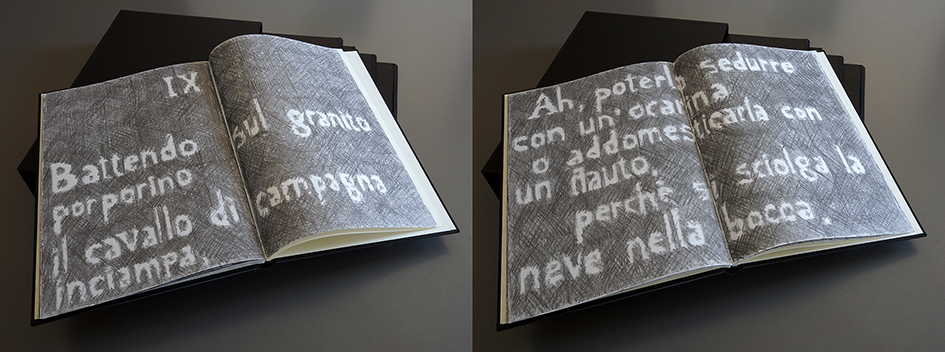 IX
Battendo sul granito
porporino
il cavallo di campagna
inciampa.
Ah, poterla sedurre
con un'ocarina
o addomesticarla con
un flauto,
perchè si sciolga la
neve nella bocca.